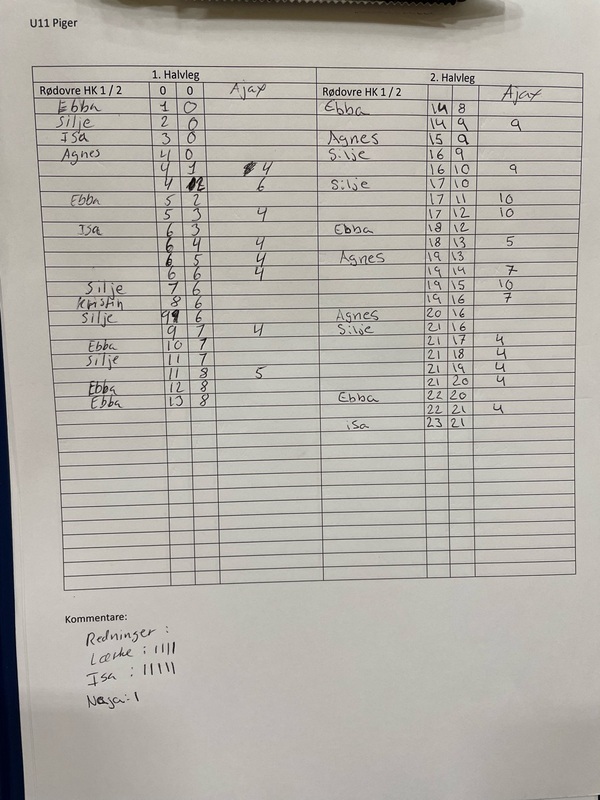 U11 Piger
1. Halvleg 2. Halvleg
Rødovre HK 1 / 2 0 0 Ajax Rødovre HK 1 / 2 Ajax
Ebba 1 0 Ebba 14 8
Silje 2 0 14 9 9
Isa 3 0 Agnes 15 9
Agnes 4 0 Silje 16 9
4 1 4 16 10 9
4 2 6 Silje 17 10
Ebba 5 2 17 11 10
5 3 4 17 12 10
Isa 6 3 Ebba 18 12
6 4 4 18 13 5
6 5 4 Agnes 19 13
6 6 4 19 14 7
Silje 7 6 19 15 10
Kristin 8 6 19 16 7
Silje 9 6 Agnes 20 16
9 7 4 Silje 21 16
Ebba 10 7 21 17 4
Silje 11 7 21 18 4
11 8 5 21 19 4
Ebba 12 8 21 20 4
Ebba 13 8 Ebba 22 20
22 21 4
isa 23 21
Kommentare:
Redninger :
Lærke : IIII
Isa : IIIII
Naja: I